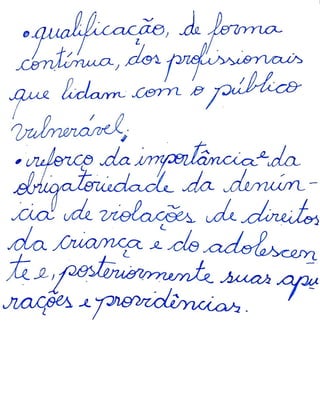 •qualificação, de forma
contínua, dos profissionais
que lidam com o público
vulnerável;
•reforço da importância e da
obrigatoriedade da denún-
cia de violações de direitos
da criança e do adolescen
te e, posteriormente suas apu
rações e providências.